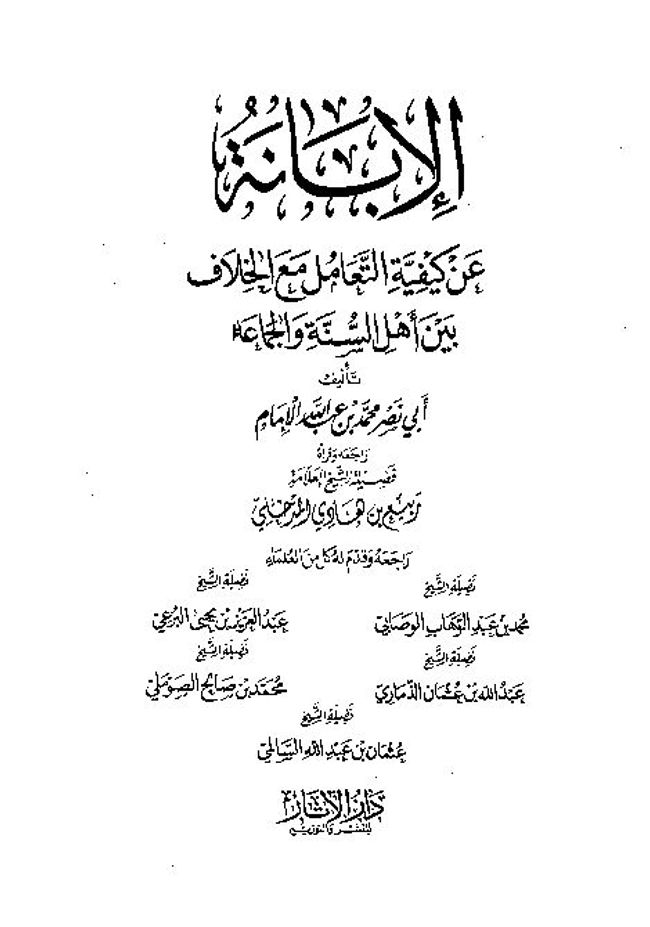 الإِبَانَةُ
عَنْ كَيْفِيَّةِ التَّعَامُلِ مَعَ الخِلَافِ
بَيْنَ أَهْلِ السُّنَّةِ وَالجَمَاعَة
تَأليفُ
أَبِي نَصْرٍ مُحَمَّدِ بْنِ عَبْدِ اللهِ الإِمَامِ
رَاجَعَه وَقَرأه
فَضِيلَة الشَّيْخ العَلَّامَة
رَبِيْعُ بن هَادِي المَدْخَلِيّ
رَاجَعَهُ وَقَدَّمَ لَهُ كُلٌّ مِنَ العُلَمَاءِ
فَضِيلَةِ الشَّيْخِ فَضِيلَةِ الشَّيْخِ
مُحمّد بن عَبْدِ الوَهَّابِ الوَصَابِيِّ عَبْدُ العَزِيْزِ بْنِ يَحْيَى البُرَعِيِّ
فَضِيلَةِ الشَّيْخِ فَضِيلَةِ الشَّيْخِ
عَبْدُ اللهِ بْنِ عُثْمَانَ الذَّمَارِيّ مُحَمَّد بْن صَالِح الصَّوْمَلِيّ
فَضِيلَةِ الشَّيْخِ
عُثْمَان بْن عَبْدِ اللهِ السَّالِمِيّ
دَارُ الآثَارِ
للنشر والتوزيع